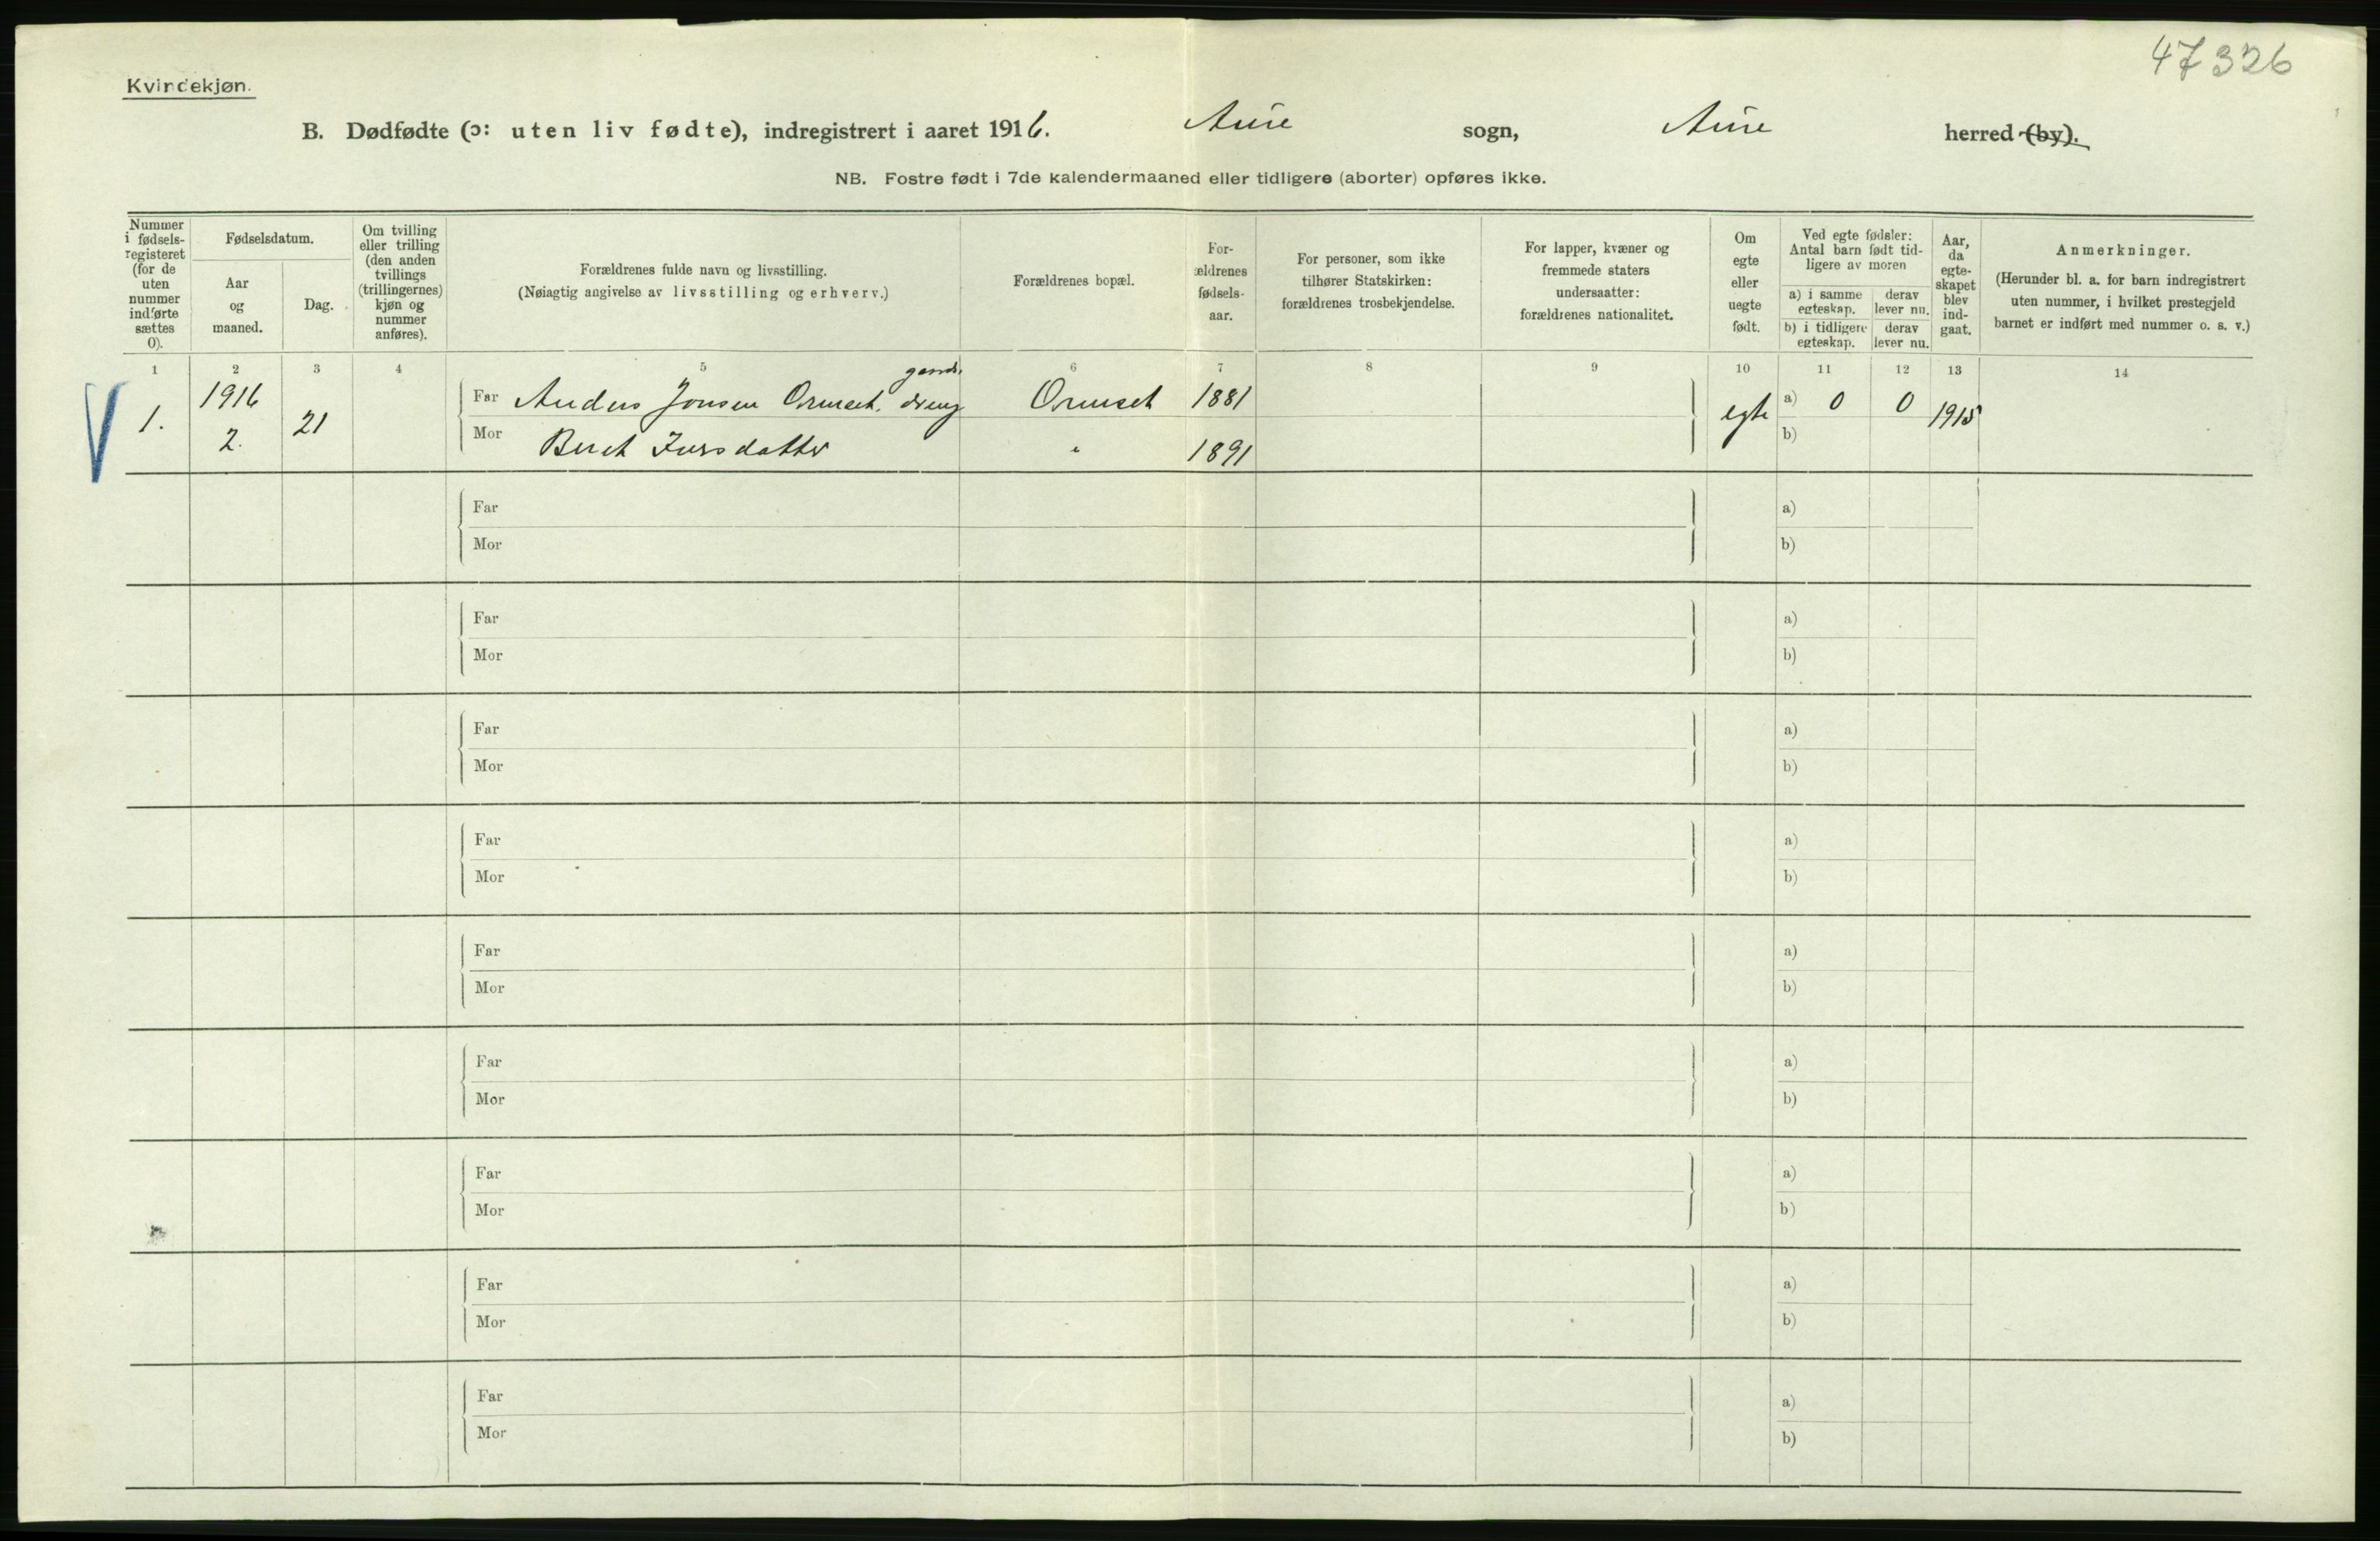 47326
Kvindekjøn.
B. Dødfødte (ɔ: uten liv fødte), indregistrert i aaret 1916. Aure sogn, Aure herred (by).
NB. Fostre født i 7de kalendermaaned eller tidligere (aborter) opføres ikke.
Nummer i fødsels-registeret (for de uten nummer indførte sættes 0).
Fødselsdatum.
Aar og maaned.
Dag.
Om tvilling eller trilling (den anden tvillings (trillingernes) kjøn og nummer anføres).
Forældrenes fulde navn og livsstilling.
(Nøiagtig angivelse av livsstilling og erhverv.)
Forældrenes bopæl.
For-ældrenes fødsels-aar.
For personer, som ikke tilhører Statskirken: forældrenes trosbekjendelse.
For lapper, kvæner og fremmede staters undersaatter: forældrenes nationalitet.
Om egte eller uegte født.
Ved egte fødsler: Antal barn født tid-ligere av moren
a) i samme egteskap. derav lever nu.
b) i tidligere egteskap. derav lever nu.
Aar, da egte-skapet blev ind-gaat.
Anmerkninger.
(Herunder bl. a. for barn indregistrert uten nummer, i hvilket prestegjeld barnet er indført med nummer o. s. v.)
1 2 3 4 5 6 7 8 9 10 11 12 13 14
1. 1916 2. 21
gaards.
Far Anders Jonsen Ormset, dreng Ormset 1881 egte a) 0 0 1915
Mor Beret Iversdatter " 1891 b)
Far a)
Mor b)
Far a)
Mor b)
Far a)
Mor b)
Far a)
Mor b)
Far a)
Mor b)
Far a)
Mor b)
Far a)
Mor b)
Far a)
Mor b)
Far a)
Mor b)